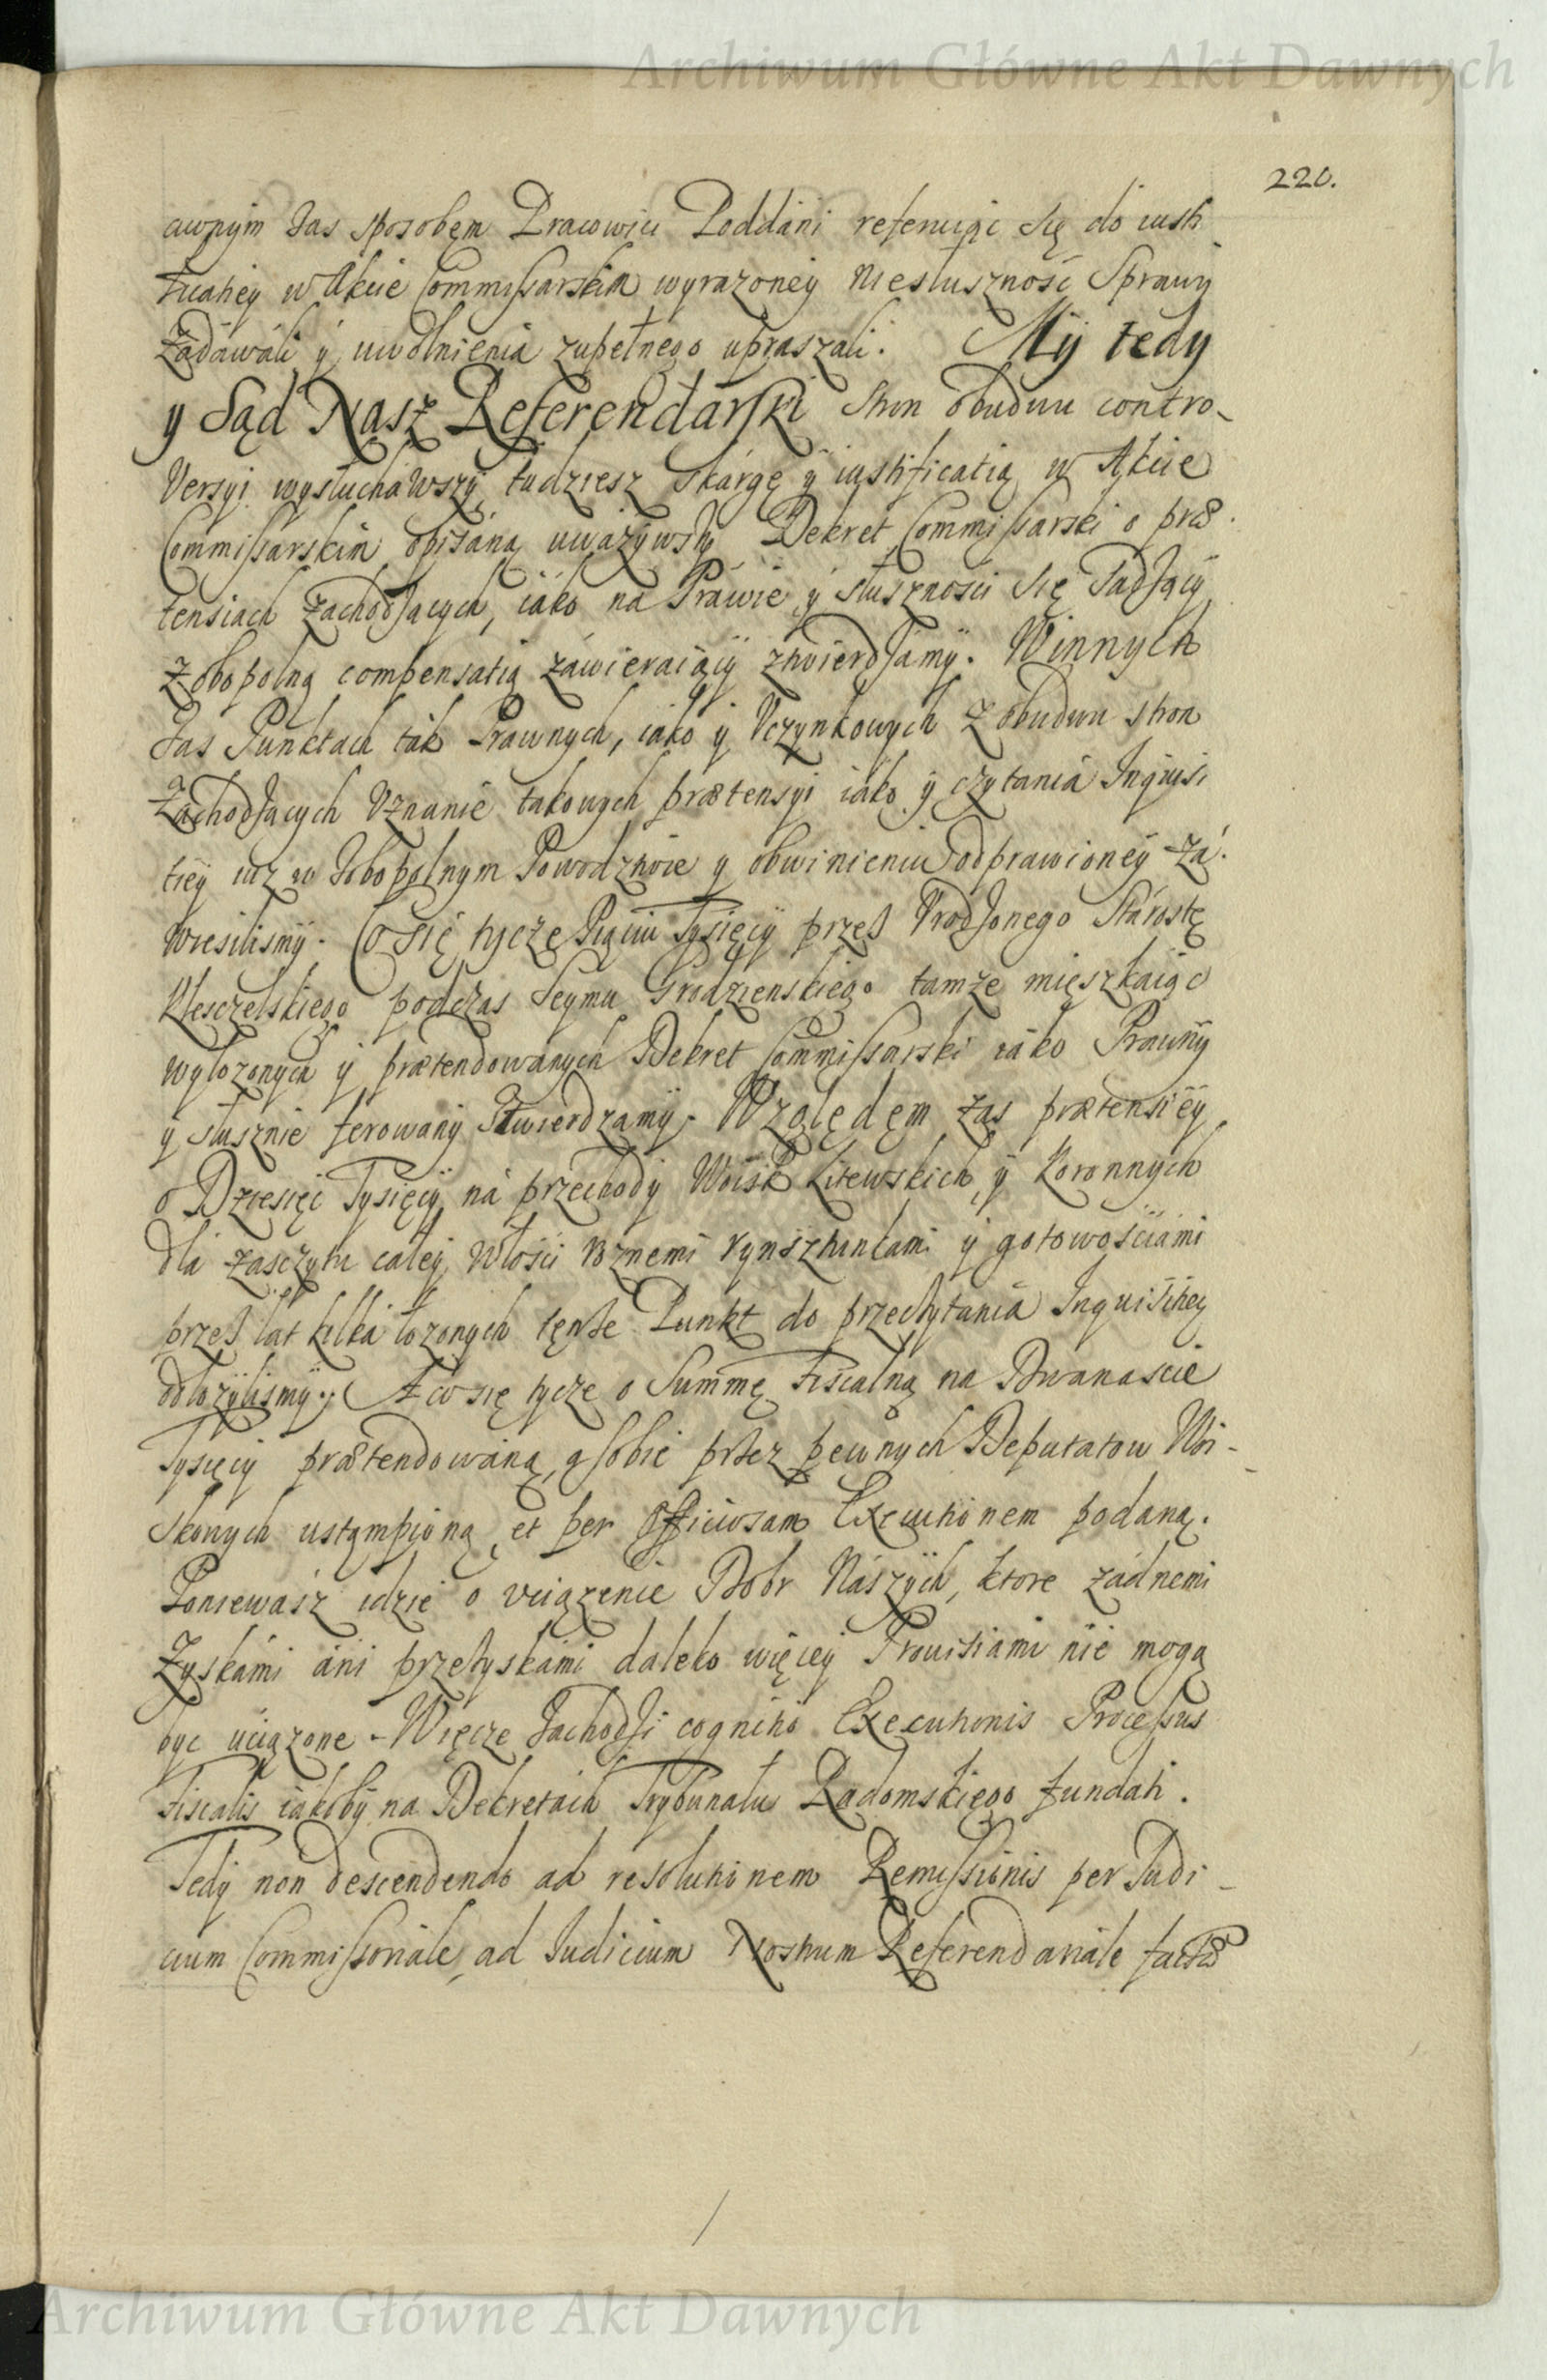 Archiwum Główne Akt Dawnych
220.
zas sposobem Pracowici Poddani referuiąc się do iusti
ficatiey w Akcie Commissarskim wyrazoney niesłuszność Sprawy
Zadawali y uwolnienia zupełnego upraszali. My tedy
y Sąd Nasz Referendarski stron obudwu contro-
versyi wysłuchawszy tudziesz skargę y iustificatią w Akcie
Commissarskim opisaną uwazywszy Dekret Commissarski o præ
tensiach zachodzących, iako na Prawie y słusznosci się sadzący
z obopolną compensatią zawieraiący ztwierdzamy. W innych
zas Punktach tak Prawnych, iako y Uczynkowych z obudwu stron
Zachodzących Uznanie takowych prætensyi iako y czytania Inquisi
tiey iuz w obopolnym Powodztwie y obwinieniu odprawioney za
wiesilismy. Co się tycze Pięciu Tysięcy przez Urodzonego Starostę
Klesczelskiego podczas Seymu Grodzienskiego tamze mięszkaiąc
wyłozonych y prætendowanych Dekret Commissarski iako Prawny
y słusznie ferowany Stwierdzamy. Względem zas prætensiey
o Dziesięć Tysięcy na przechody Woisk Litewskich y Koronnych
dla zasczytu całey Włosci roznemi rynsztunkami y gotowosciami
przez lat kilka łozonych tęnze Punkt do przeczytania Inquisitiey
dołozylismy. A co się tycze o Summę fiscalną na Dwanascie
Tysięcy prætendowaną, a sobie przez pewnych Deputatow Woi-
skowych ustąmpioną, et per Officiosam Executionem podaną.
Poniewasz idzie o uciązenie Dobr Naszych, ktore zadnemi
Zyskami ani przezyskami daleko więcey Provisiami nie mogą
byc uciązone. Więc ze zachodzi cognitio Executionis Processus
Fiscalis iakoby na Dekretach Trybunału Radomskiego fundati.
Tedy non descendendo ad resolutionem Remissionis per Iudi-
cium Commissoriale, ad Iudicium Nostrum Referendariale factæ
Archiwum Główne Akt Dawnych